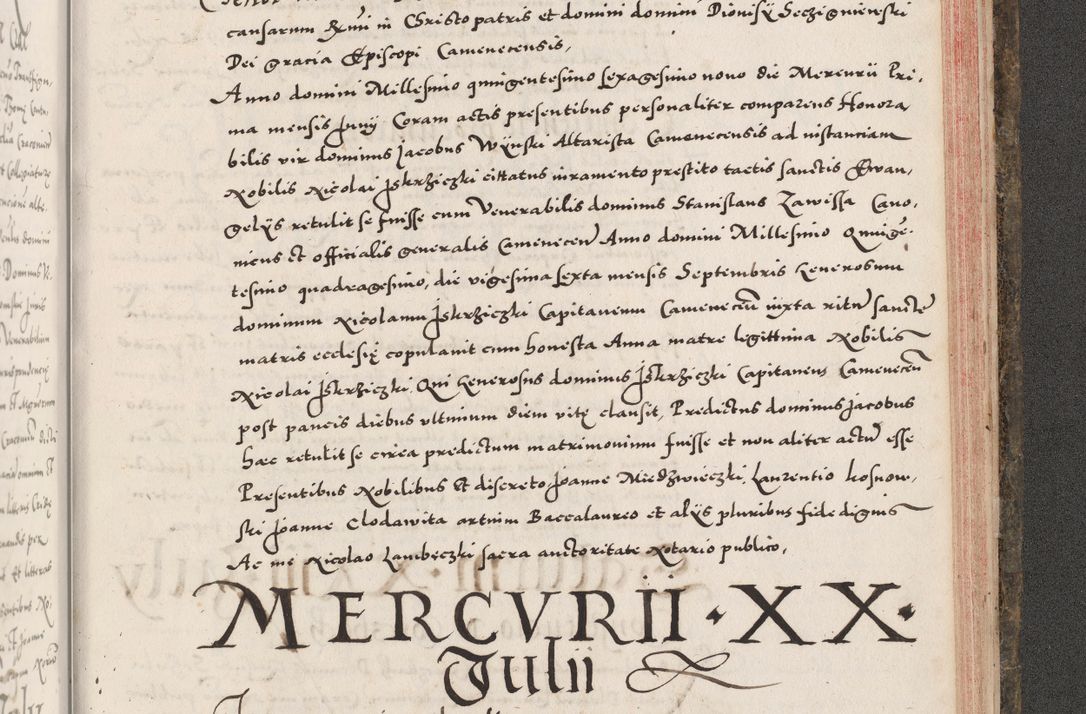 causarum Rmi in Christo patris et domini domini Dionisÿ Seczigniewski
Dei gracia Episcopi Camenecensis,
Anno domini Millesimo quingentesimo sexagesimo nono die Mercurii Pri,
ma mensis Junÿ Coram actis presentibus personaliter comparens Honora,
bilis vir dominus Jacobus Wÿnski Altarista Camenecensis ad instanciam
Nobilis Nicolai Jskrziczki cittatus iuramento prestito tactis sanctis Ewan,
gelÿs retulit se fuisse cum Venerabilis dominus Stanislaus Zawissa Cano,
nicus et officialis generalis Camenecen Anno domini Millesimo Quinge,
tesimo quadragesimo, die vigesima sexta mensis Septembris Generosum
dominum Nicolaum Jskrziczki Capitaneum Camenecen iuxta ritu sancte
matris ecclesię copulauit cum honesta Anna matre legittima Nobilis
Nicolai Jskrziczki Qui Generosus dominus Jskrziczki Capitaneus Camenecen
post paucis diebus vltimum diem vitę clausit, Predictus dominus Jacobus
haec retulit se circa predictum matrimonium fuisse et non aliter actu esse
Presentibus Nobilibus et discreto Joanne Miedzwieczki, Laurentio kosnow,
ski Joanne Clodawita artium Baccalaureo et alÿs pluribus fide dignis
Ac me Nicolao Lambeczki sacra auctoritate Notario publico,
MERCVRII · XX ·
Julii